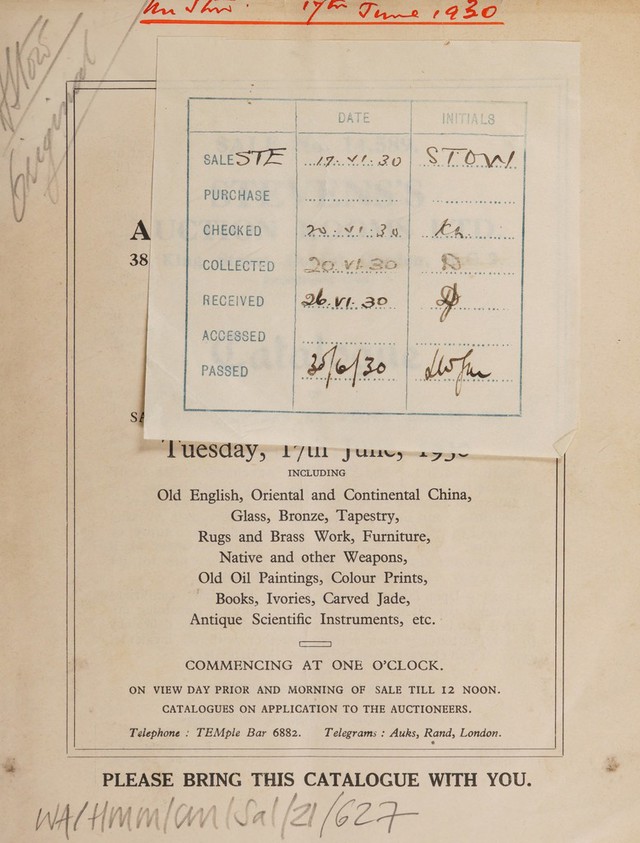 Mr Stow. 17th June 1930
Stow
Original
DATE INITIALS
SALE STE 17.VI.30 STOW
PURCHASE
CHECKED 20.VI.30
COLLECTED 20.VI.30
RECEIVED 26.VI.30
ACCESSED
PASSED 30/6/30
A
38
SA
Tuesday, 17th June, 1930
INCLUDING
Old English, Oriental and Continental China,
Glass, Bronze, Tapestry,
Rugs and Brass Work, Furniture,
Native and other Weapons,
Old Oil Paintings, Colour Prints,
Books, Ivories, Carved Jade,
Antique Scientific Instruments, etc.
COMMENCING AT ONE O'CLOCK.
ON VIEW DAY PRIOR AND MORNING OF SALE TILL 12 NOON.
CATALOGUES ON APPLICATION TO THE AUCTIONEERS.
Telephone : TEMple Bar 6882. Telegrams : Auks, Rand, London.
PLEASE BRING THIS CATALOGUE WITH YOU.
WA/HMM/CM/Sal/21/627